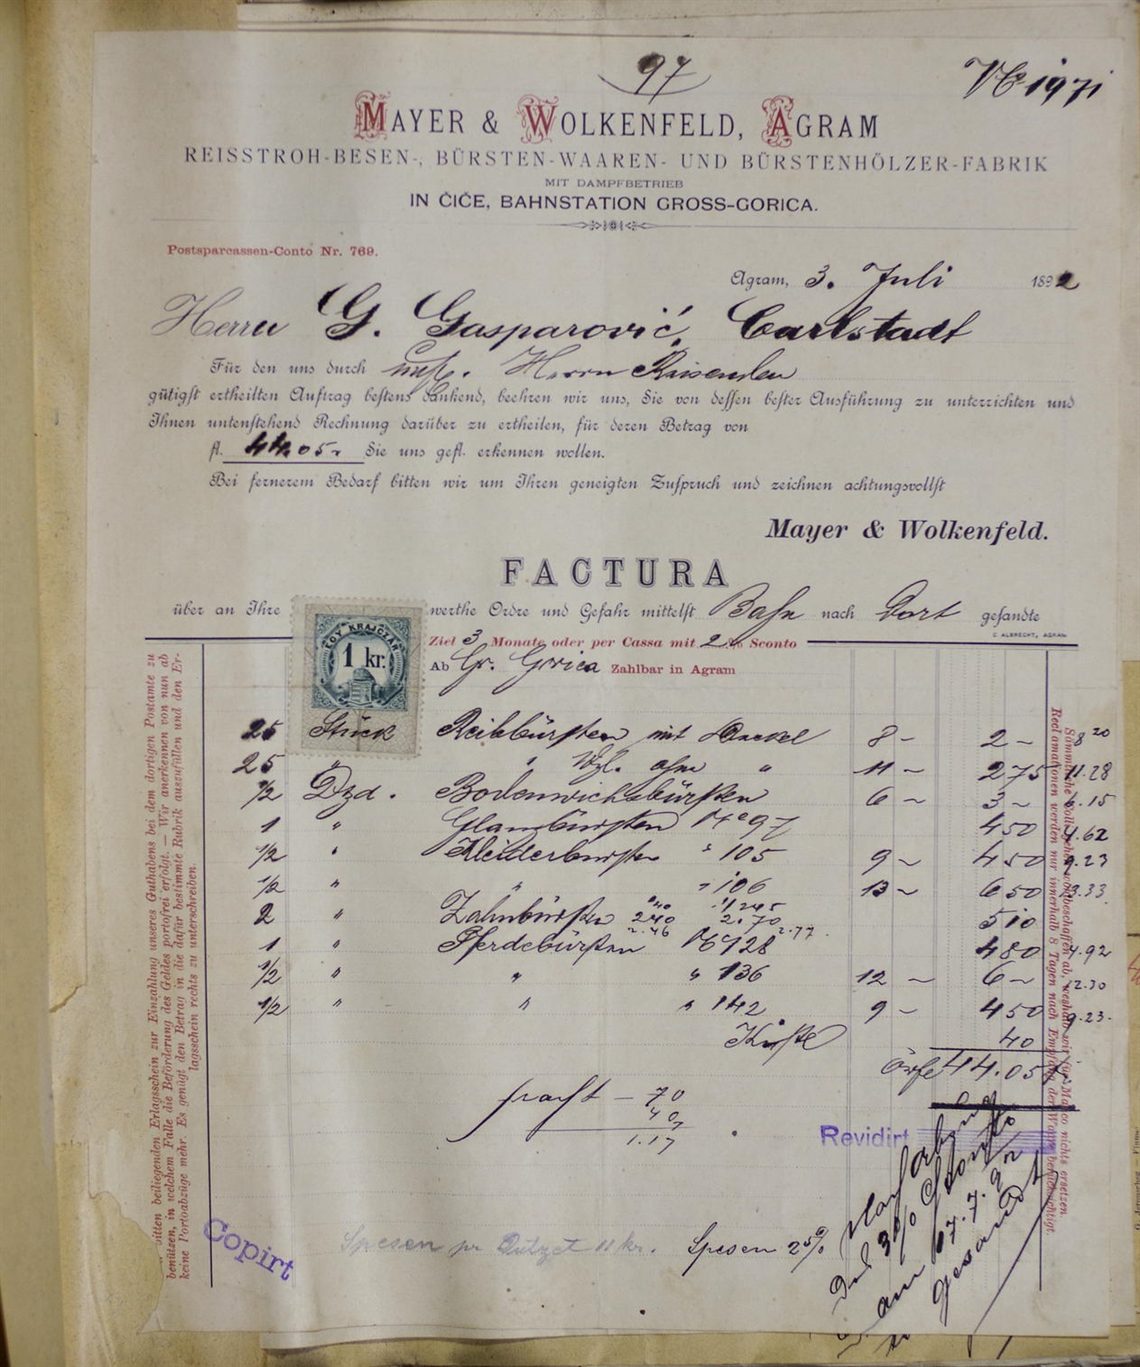 97
1971
MAYER & WOLKENFELD, AGRAM
REISSTROH-BESEN-, BÜRSTEN-WAAREN- UND BÜRSTENHÖLZER-FABRIK
MIT DAMPFBETRIEB
IN ČIČE, BAHNSTATION GROSS-GORICA.
Postsparcassen-Conto Nr. 769.
Agram, 3. Juli 1892
Herrn G. Gasparović, Carlstadt
Für den uns durch uns. Herrn Reisenden
gütigst ertheilten Auftrag bestens dankend, beehren wir uns, Sie von dessen bester Ausführung zu unterrichten und
Ihnen untenstehend Rechnung darüber zu ertheilen, für deren Betrag von
fl. 44.05 Sie uns gefl. erkennen wollen.
Bei fernerem Bedarf bitten wir um Ihren geneigten Zuspruch und zeichnen achtungsvollst
Mayer & Wolkenfeld.
FACTURA
über an Ihre werthe Ordre und Gefahr mittelst Bahn nach Dort gesandte
C. ALBRECHT, AGRAM
EGY KRAJCZÁR
1 kr.
Ziel 3 Monate oder per Cassa mit 2% Sconto
Ab Gr. Gorica Zahlbar in Agram
25 Stück Reibbürsten mit Deckel 8 – 2 – 8 20
25 " " ohne " 11 – 2 75 11.28
1/2 Dzd. Bodenwichsbürsten 6 – 3 – 6.15
1 " Glanzbürsten No 97 4 50 4.62
1/2 " Kleiderbürsten " 105 9 – 4 50 9.23
1/2 " " " 106 13 – 6 50 13.33
2 " Zahnbürsten 240 2.70 5 10
2.46 2.77
1 " Pferdebürsten No 128 4 80 4.92
1/2 " " " 136 12 – 6 – 12.30
1/2 " " " 142 9 – 4 50 9.23
Kiste 40
44.05
– 70
40
1.17
Revidirt
Copirt
Spesen pr 11 kr. Spesen 2 5%
3% Sconto
am 17.7.92
gesandt
bitten beiliegenden Erlagsschein zur Einzahlung unseres Guthabens bei dem dortigen Postamte zu
benützen, in welchem Falle die Beförderung des Geldes portofrei erfolgt. — Wir anerkennen von nun ab
keine Portoabzüge mehr. Es genügt den Betrag in die dafür bestimmte Rubrik auszufüllen und den Er-
lagsschein rechts zu unterschreiben.
Reclamationen werden nur innerhalb 8 Tagen nach Empfang der Waare berücksichtigt.